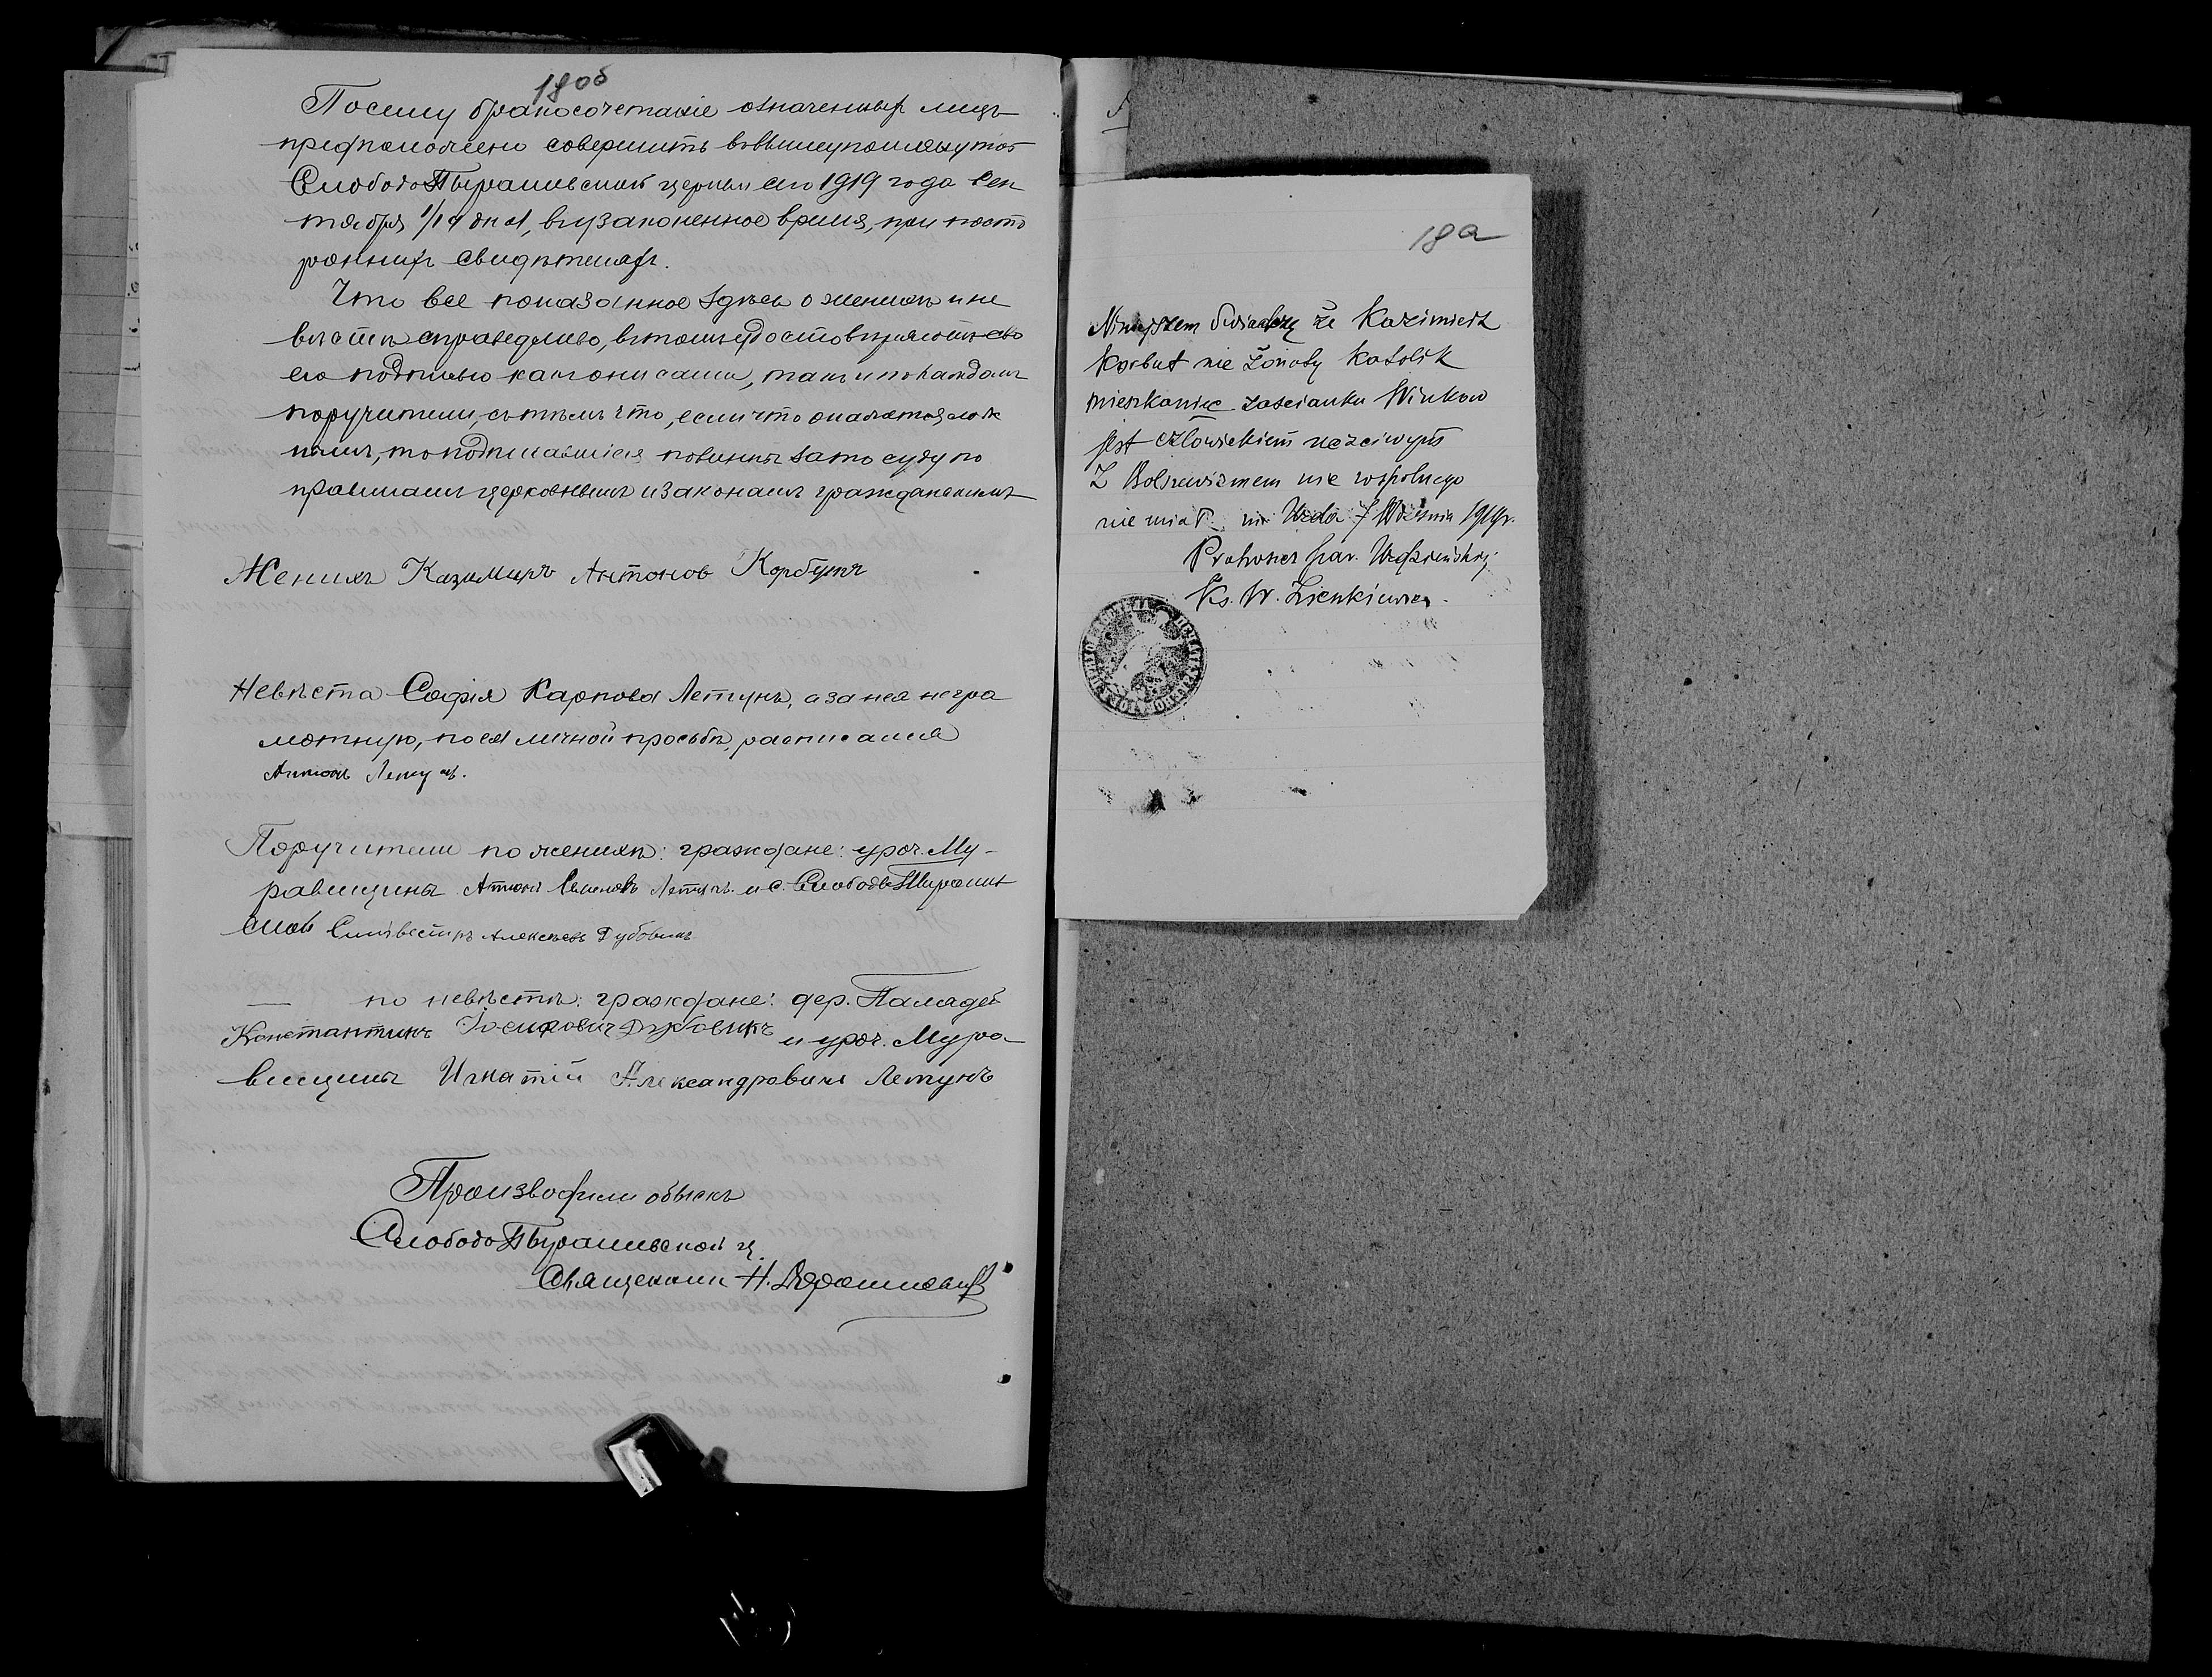 18об
Посему бракосочетаніе означенныхъ лицъ
предположено совершить въ вышеупомянутой
Слободо-Пырашевской церкви сего 1919 года Сен
тября 1/14 дня, въ узаконенное время, при посто
роннихъ свидѣтеляхъ.
Что все показанное здѣсь о женихѣ и не
вѣстѣ справедливо, въ томъ удостовѣряютъ сво
ею подписью какъ они сами, такъ и по каждомъ
поручители, съ тѣмъ что, если что окажется лож
нымъ, то подписавшіеся повинны за то суду по
правиламъ церковнымъ и законамъ гражданскимъ
Женихъ Казимиръ Антонов Корбутъ
Невѣста Софія Карпова Летунъ, а за нея негра
мотную, по ея личной просьбѣ, расписался
Антонъ Летунъ.
Поручители по женихѣ: граждане: уроч. Му-
равщины Антонъ Семеновъ Летунъ и с. Слободы-Пырашев
ской Сильвестръ Алексѣевъ Дубовикъ
— по невѣстѣ: граждане: дер.
Константинъ Іосифовичъ Дубовикъ и уроч. Мура
вщины Игнатій Александровичъ Летунъ
Производили обыскъ
Слободо-Пырашевской ц.
Священникъ Н.
18а
Niniejszem świadczę że Kazimierz
Korbut nie żonaty Katolik
mieszkaniec zaścianku Winkow
jest człowiekiem uczciwym
Z Bolszewizmem nic wspólnego
nie miał. m Uzda 7 Września 1919r.
Proboszcz par. Uzdzieńskiej
Ks. W.